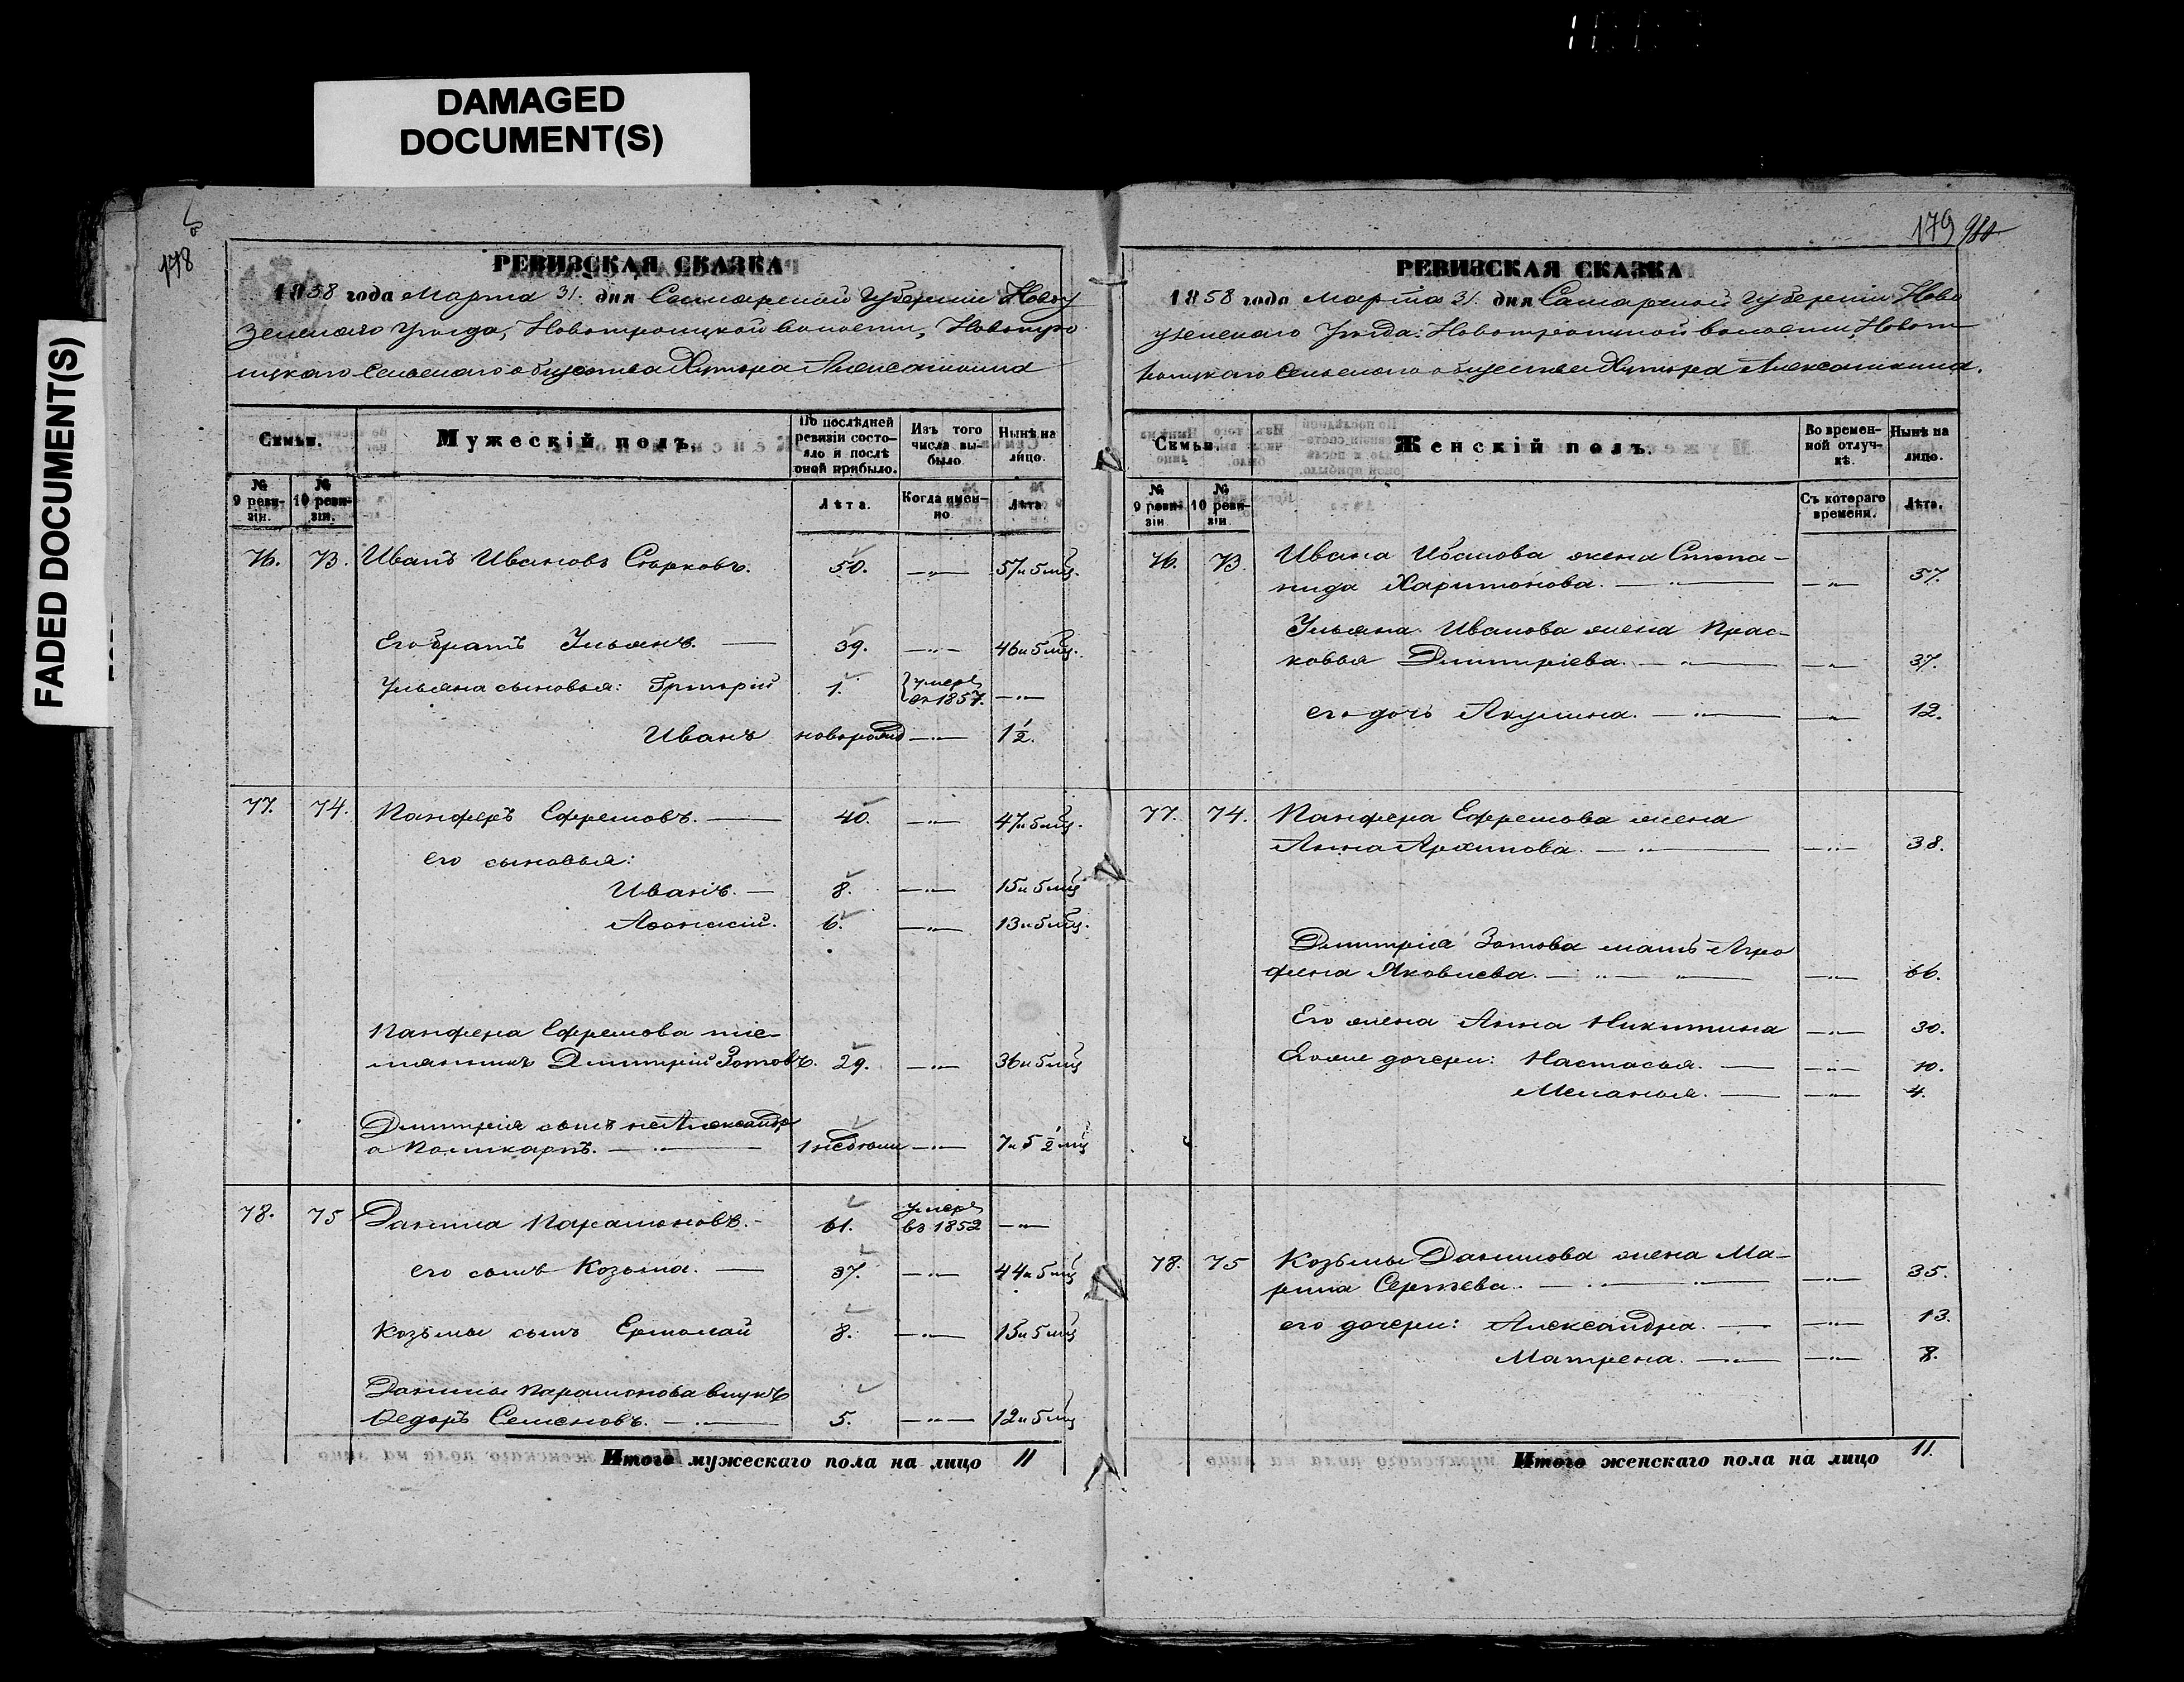 DAMAGED
DOCUMENT(S)
FADED DOCUMENT(S)
178
РЕВИЗСКАЯ СКАЗКА
1858 года Марта 31. дня Самарской Губернии Новоу
зенскаго Уезда, Новотроицкой волости, Новотро
ицкаго Сельскаго общества Хутора Алексашкина
Семьи.
Мужескій полъ.
По послѣдней ревизіи состояло и послѣ оной прибыло.
Изъ того числа выбыло.
Нынѣ на лицо.
№ 9 ревизіи.
№ 10 ревизіи.
Лѣта.
Когда именно
Лѣта.
76. 73. Иванъ Ивановъ 50. —„— 57 и 5 мц.
Его братъ Ульянъ. — 39. —„— 46 и 5 мц.
Ульяна сыновья: Григорій 1. умеръ въ 1857. —„—
Иванъ новорожд —„— 1½.
77. 74. Панферъ Ефремовъ. — 40. —„— 47 и 5 мц.
его сыновья:
Иванъ. — 8. —„— 15 и 5 мц
Афонасій. 6. —„— 13 и 5 мц.
Панфера Ефремова пле-
мянникъ Дмитрій Зотовъ. 29. —„— 36 и 5 мц
Дмитрія сынъ не Александръ
а Поликарпъ. —„— 1 недели —„— 7 и 5½ мц
78. 75 Данила Парамоновъ. - 61. умеръ въ 1852 —„—
его сынъ Козьма. — 37. —„— 44 и 5 мц
Козьмы сынъ Ермолай 8. —„— 15 и 5 мц
Данилы Парамонова внукъ
Федоръ Семеновъ. —„— 5. —„— 12 и 5 мц
Итого мужескаго пола на лицо 11
179
РЕВИЗСКАЯ СКАЗКА
1858 года марта 31. дня Самарской Губерніи Ново
узенскаго Уезда. Новотроицкой волости, Новот
роицкаго Сельскаго общества Хутора Алексашкина.
Семьи.
Женскій полъ.
Во временной отлучкѣ.
Нынѣ на лицо.
№ 9 ревизіи
№ 10 ревизіи
Съ котераго времени.
Лѣта.
76. 73. Ивана Иванова жена Степа-
нида Харитонова. —„— —„— 57.
Ульяна Иванова жена Прас-
ковья Дмитріева. —„— —„— 37.
его дочь Акулина. —„— —„— 12.
77. 74. Панфера Ефремова жена
Анна Архипова. —„— —„— 38.
Дмитрія Зотова мать Агро
фена Яковлева. —„— „— —„— 66.
Его жена Анна Никитина —„— 30.
Его же дочери: Настасья. — —„— 10.
Меланья. — —„— 4.
78. 75 Козьмы Данилова жена Ма-
рина Сергѣева. —„— „— —„— 35.
его дочери: Александра. — —„— 13.
Матрена. —„— —„— 8.
Итого женскаго пола на лицо 11.